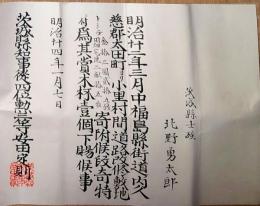 茨城縣士族
北野勇太郎
明治廿二年三月中福島縣街道內久
慈郡太田町小里村間道路修繕地
寄附候段奇特
付為其賞木杯壹個下賜候事
明治廿四年一月七日
茨城縣知事從四位勳三等安田定則